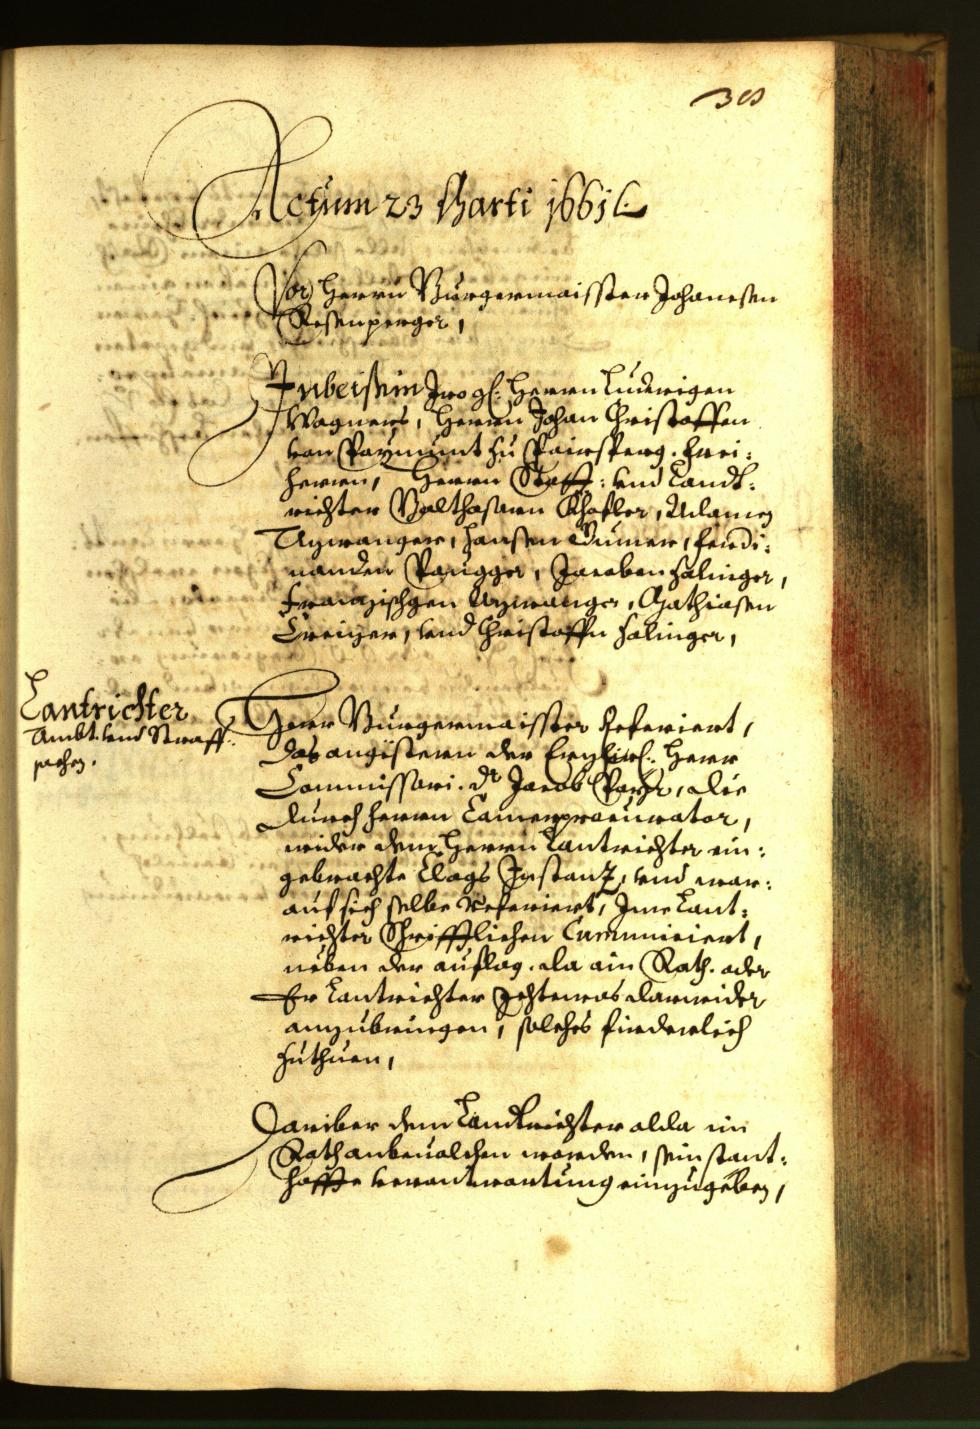 Actum 23 Marti 1661
Vor Herrn Burgermaister Johanesen
Rosenperger,
In beisein Iro gl: Herrn Ludwigen
Wagners, Herrn Johan Christoffen
von Paymunt zu Pairsperg. frei:
herrn, Herrn Statt: und Landt:
richter Balthasarn Khofler, Adamen
Azwanger, Hansen Gumer, Ferdi:
nanden Paugger, Jacoben Halinger,
Franzischgen Azwanger, Mathiasen
Creizer, und Christoffn Halinger,
Lantrichter
Ambt und Straff:
sachen.
Herr Burgermaister Referiert,
das angistern der Herr
Commissari. Dr Jacob, die
durch Herrn Camerprocurator,
wider dem Herrn Lantrichter ein:
gebrachte Clags Instanz, und war:
auf sich selbe Referiert, Ime Lant:
richter Schrifftlichen Cummuniciert,
neben der auflag. da ain Rath. oder
Er Lantrichter Ichtwas darwider
anzubringen, solches fürderlich
zuthuen,
Dariber dem Landtrichter alda im
Rath anbevolchen worden, sein stant:
haffte verantwortung einzugeben,